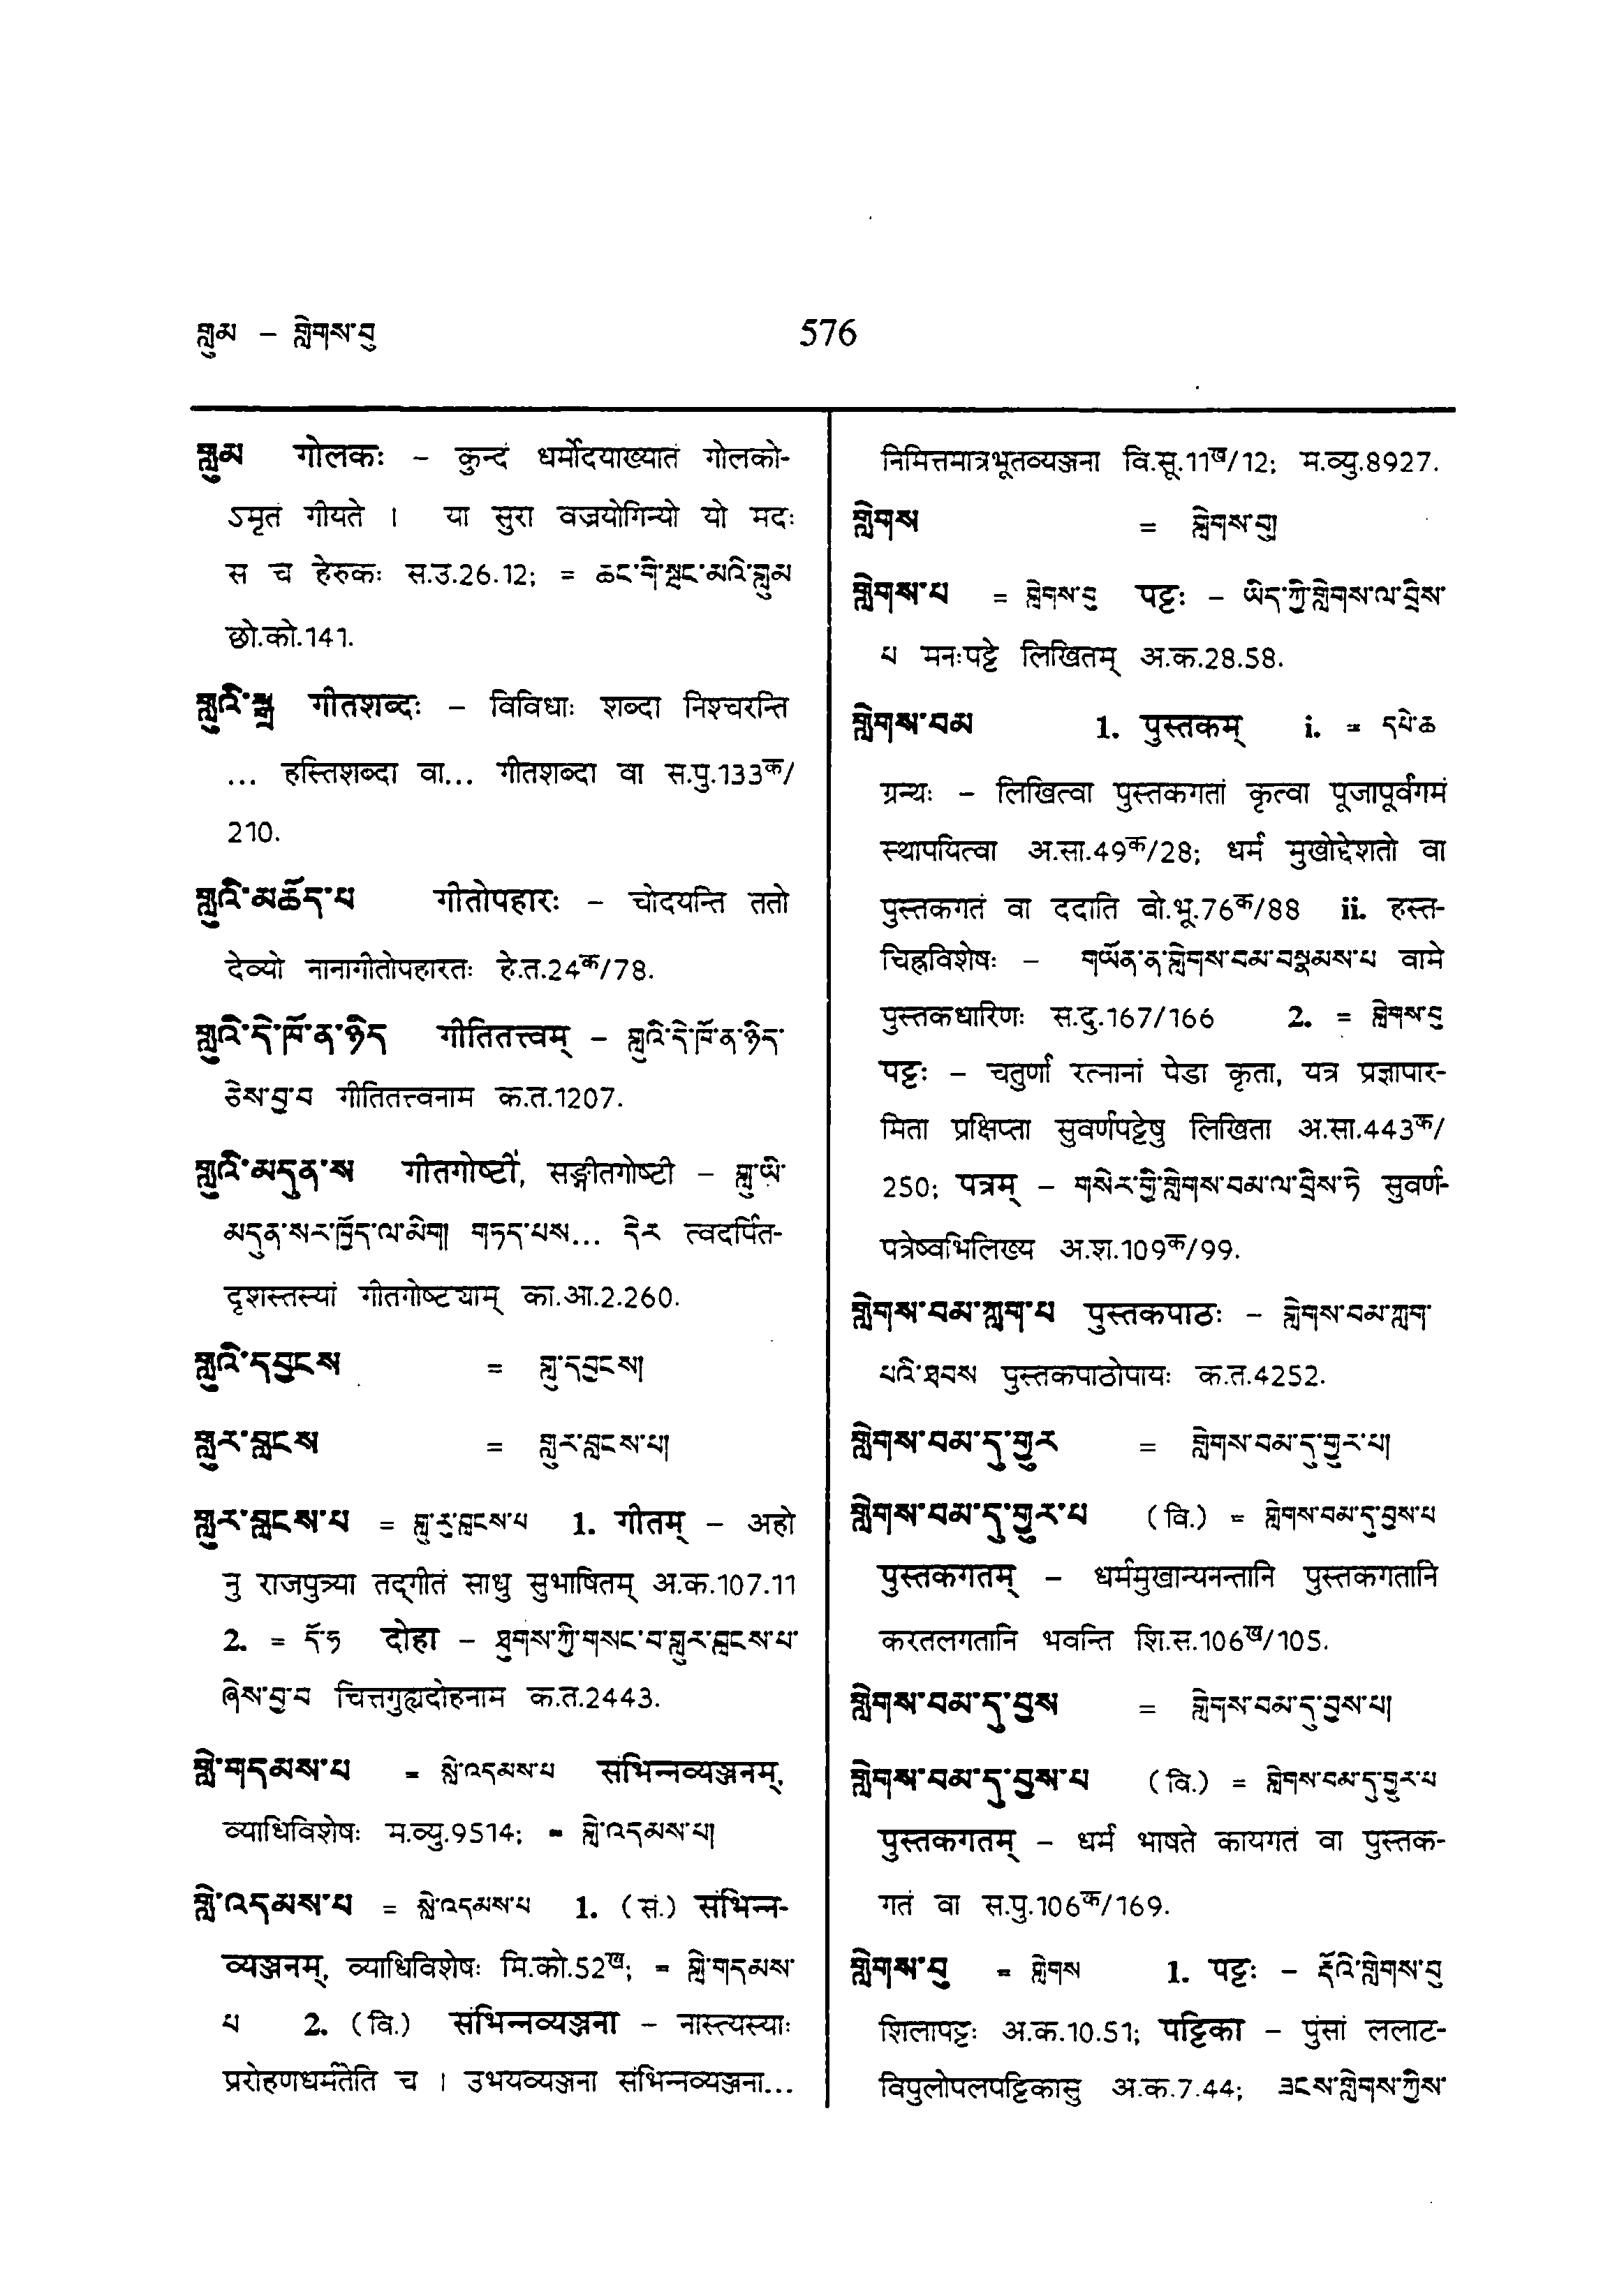 གླུམ – གླེགས་བུ
576
གླུམ गोलकः – कुन्दं धर्मोदयाख्यातं गोलको-
ऽमृतं गीयते । या सुरा वज्रयोगिन्यो यो मदः
स च हेरुकः स.उ.26.12; = ཆང་གི་སྦང་མའི་གླུམ
छो.को.141.
གླུའི་སྒྲ गीतशब्दः – विविधाः शब्दा निश्चरन्ति
... हस्तिशब्दा वा... गीतशब्दा वा स.पु.133क/
210.
གླུའི་མཆོད་པ गीतोपहारः – चोदयन्ति ततो
देव्यो नानागीतोपहारतः हे.त.24क/78.
གླུའི་དེ་ཁོ་ན་ཉིད गीतितत्त्वम् – གླུའི་དེ་ཁོ་ན་ཉིད་
ཅེས་བྱ་བ गीतितत्त्वनाम क.त.1207.
གླུའི་མདུན་ས गीतगोष्टी, सङ्गीतगोष्टी – གླུ་ཡི་
མདུན་སར་ཁྱོད་ལ་མིག། གཏད་པས... དེར त्वदर्पित-
दृशस्तस्यां गीतगोष्ट्याम् का.आ.2.260.
གླུའི་དབྱངས = གླུ་དབྱངས།
གླུར་བླངས = གླུར་བླངས་པ།
གླུར་བླངས་པ = གླུ་རུ་བླངས་པ 1. गीतम् – अहो
नु राजपुत्र्या तद्गीतं साधु सुभाषितम् अ.क.107.11
2. = དོ་ཧ दोहा – ཐུགས་ཀྱི་གསང་བ་གླུར་བླངས་པ་
ཞེས་བྱ་བ चित्तगुह्यदोहनाम क.त.2443.
གླེ་གདམས་པ = སླེ་འདམས་པ संभिन्नव्यञ्जनम्,
व्याधिविशेषः म.व्यु.9514; = གླེ་འདམས་པ།
གླེ་འདམས་པ = སླེ་འདམས་པ 1. (सं.) संभिन्न-
व्यञ्जनम्, व्याधिविशेषः मि.को.52ख; = གླེ་གདམས་
པ 2. (वि.) संभिन्नव्यञ्जना – नास्त्यस्याः
प्ररोहणधर्मतेति च । उभयव्यञ्जना संभिन्नव्यञ्जना...
निमित्तमात्रभूतव्यञ्जना वि.सू.11ख/12; म.व्यु.8927.
གླེགས = གླེགས་བུ།
གླེགས་པ = གླེགས་བུ पट्टः – ཡིད་ཀྱི་གླེགས་ལ་བྲིས་
པ मनःपट्टे लिखितम् अ.क.28.58.
གླེགས་བམ 1. पुस्तकम् i. = དཔེ་ཆ
ग्रन्थः – लिखित्वा पुस्तकगतां कृत्वा पूजापूर्वंगमं
स्थापयित्वा अ.सा.49क/28; धर्मं मुखोद्देशतो वा
पुस्तकगतं वा ददाति बो.भू.76क/88 ii. हस्त-
चिह्नविशेषः – གཡོན་ན་གླེགས་བམ་བསྣམས་པ वामे
पुस्तकधारिणः स.दु.167/166 2. = གླེགས་བུ
पट्टः – चतुर्णां रत्नानां पेडा कृता, यत्र प्रज्ञापार-
मिता प्रक्षिप्ता सुवर्णपट्टेषु लिखिता अ.सा.443क/
250; पत्रम् – གསེར་གྱི་གླེགས་བམ་ལ་བྲིས་ཏེ सुवर्ण-
पत्रेष्वभिलिख्य अ.श.109क/99.
གླེགས་བམ་ཀླག་པ पुस्तकपाठः – གླེགས་བམ་ཀླག་
པའི་ཐབས पुस्तकपाठोपायः क.त.4252.
གླེགས་བམ་དུ་གྱུར = གླེགས་བམ་དུ་གྱུར་པ།
གླེགས་བམ་དུ་གྱུར་པ (वि.) = གླེགས་བམ་དུ་བྱས་པ
पुस्तकगतम् – धर्ममुखान्यनन्तानि पुस्तकगतानि
करतलगतानि भवन्ति शि.स.106ख/105.
གླེགས་བམ་དུ་བྱས = གླེགས་བམ་དུ་བྱས་པ།
གླེགས་བམ་དུ་བྱས་པ (वि.) = གླེགས་བམ་དུ་གྱུར་པ
पुस्तकगतम् – धर्मं भाषते कायगतं वा पुस्तक-
गतं वा स.पु.106क/169.
གླེགས་བུ = གླེགས 1. पट्टः – རྡོའི་གླེགས་བུ
शिलापट्टः अ.क.10.51; पट्टिका – पुंसां ललाट-
विपुलोपलपट्टिकासु अ.क.7.44; ཟངས་གླེགས་ཀྱིས་